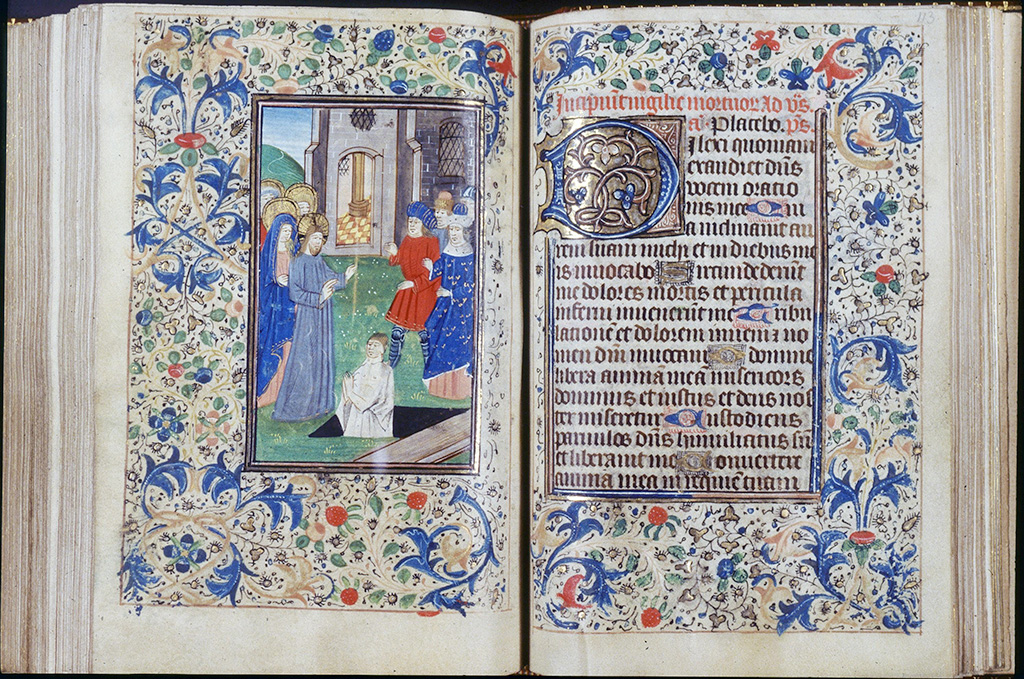 Incipiūt vigilie mortuoꝝ Ad vs̄.
añ Placebo. ps̄.
Dilexi quoniam
exaudiet dn̄s
vocem oratio
nis mee Qui
a inclinauit au
rem suam michi et in diebus me
is inuocabo Circumdederūt
me dolores mortis et pericula
inferni inuenerūt me Tribu
lationē et dolorem inueni ⁊ no
men dn̄i inuocaui O domine
libera animā meā misericors
dominus et iustus et deus nos
ter miseretur Custodiens
paruulos dn̄s humiliatus sū
et liberauit me Conuertere
anima mea in requiē tuam